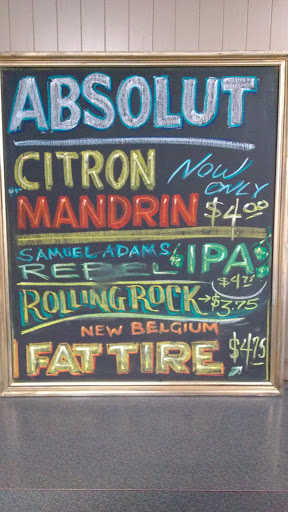 ABSOLUT
CITRON
or
MANDRIN
NOW
ONLY
$4.00
SAMUEL ADAMS
REBEL IPA
$4.75
ROLLING ROCK → $3.75
NEW BELGIUM
FAT TIRE $4.75